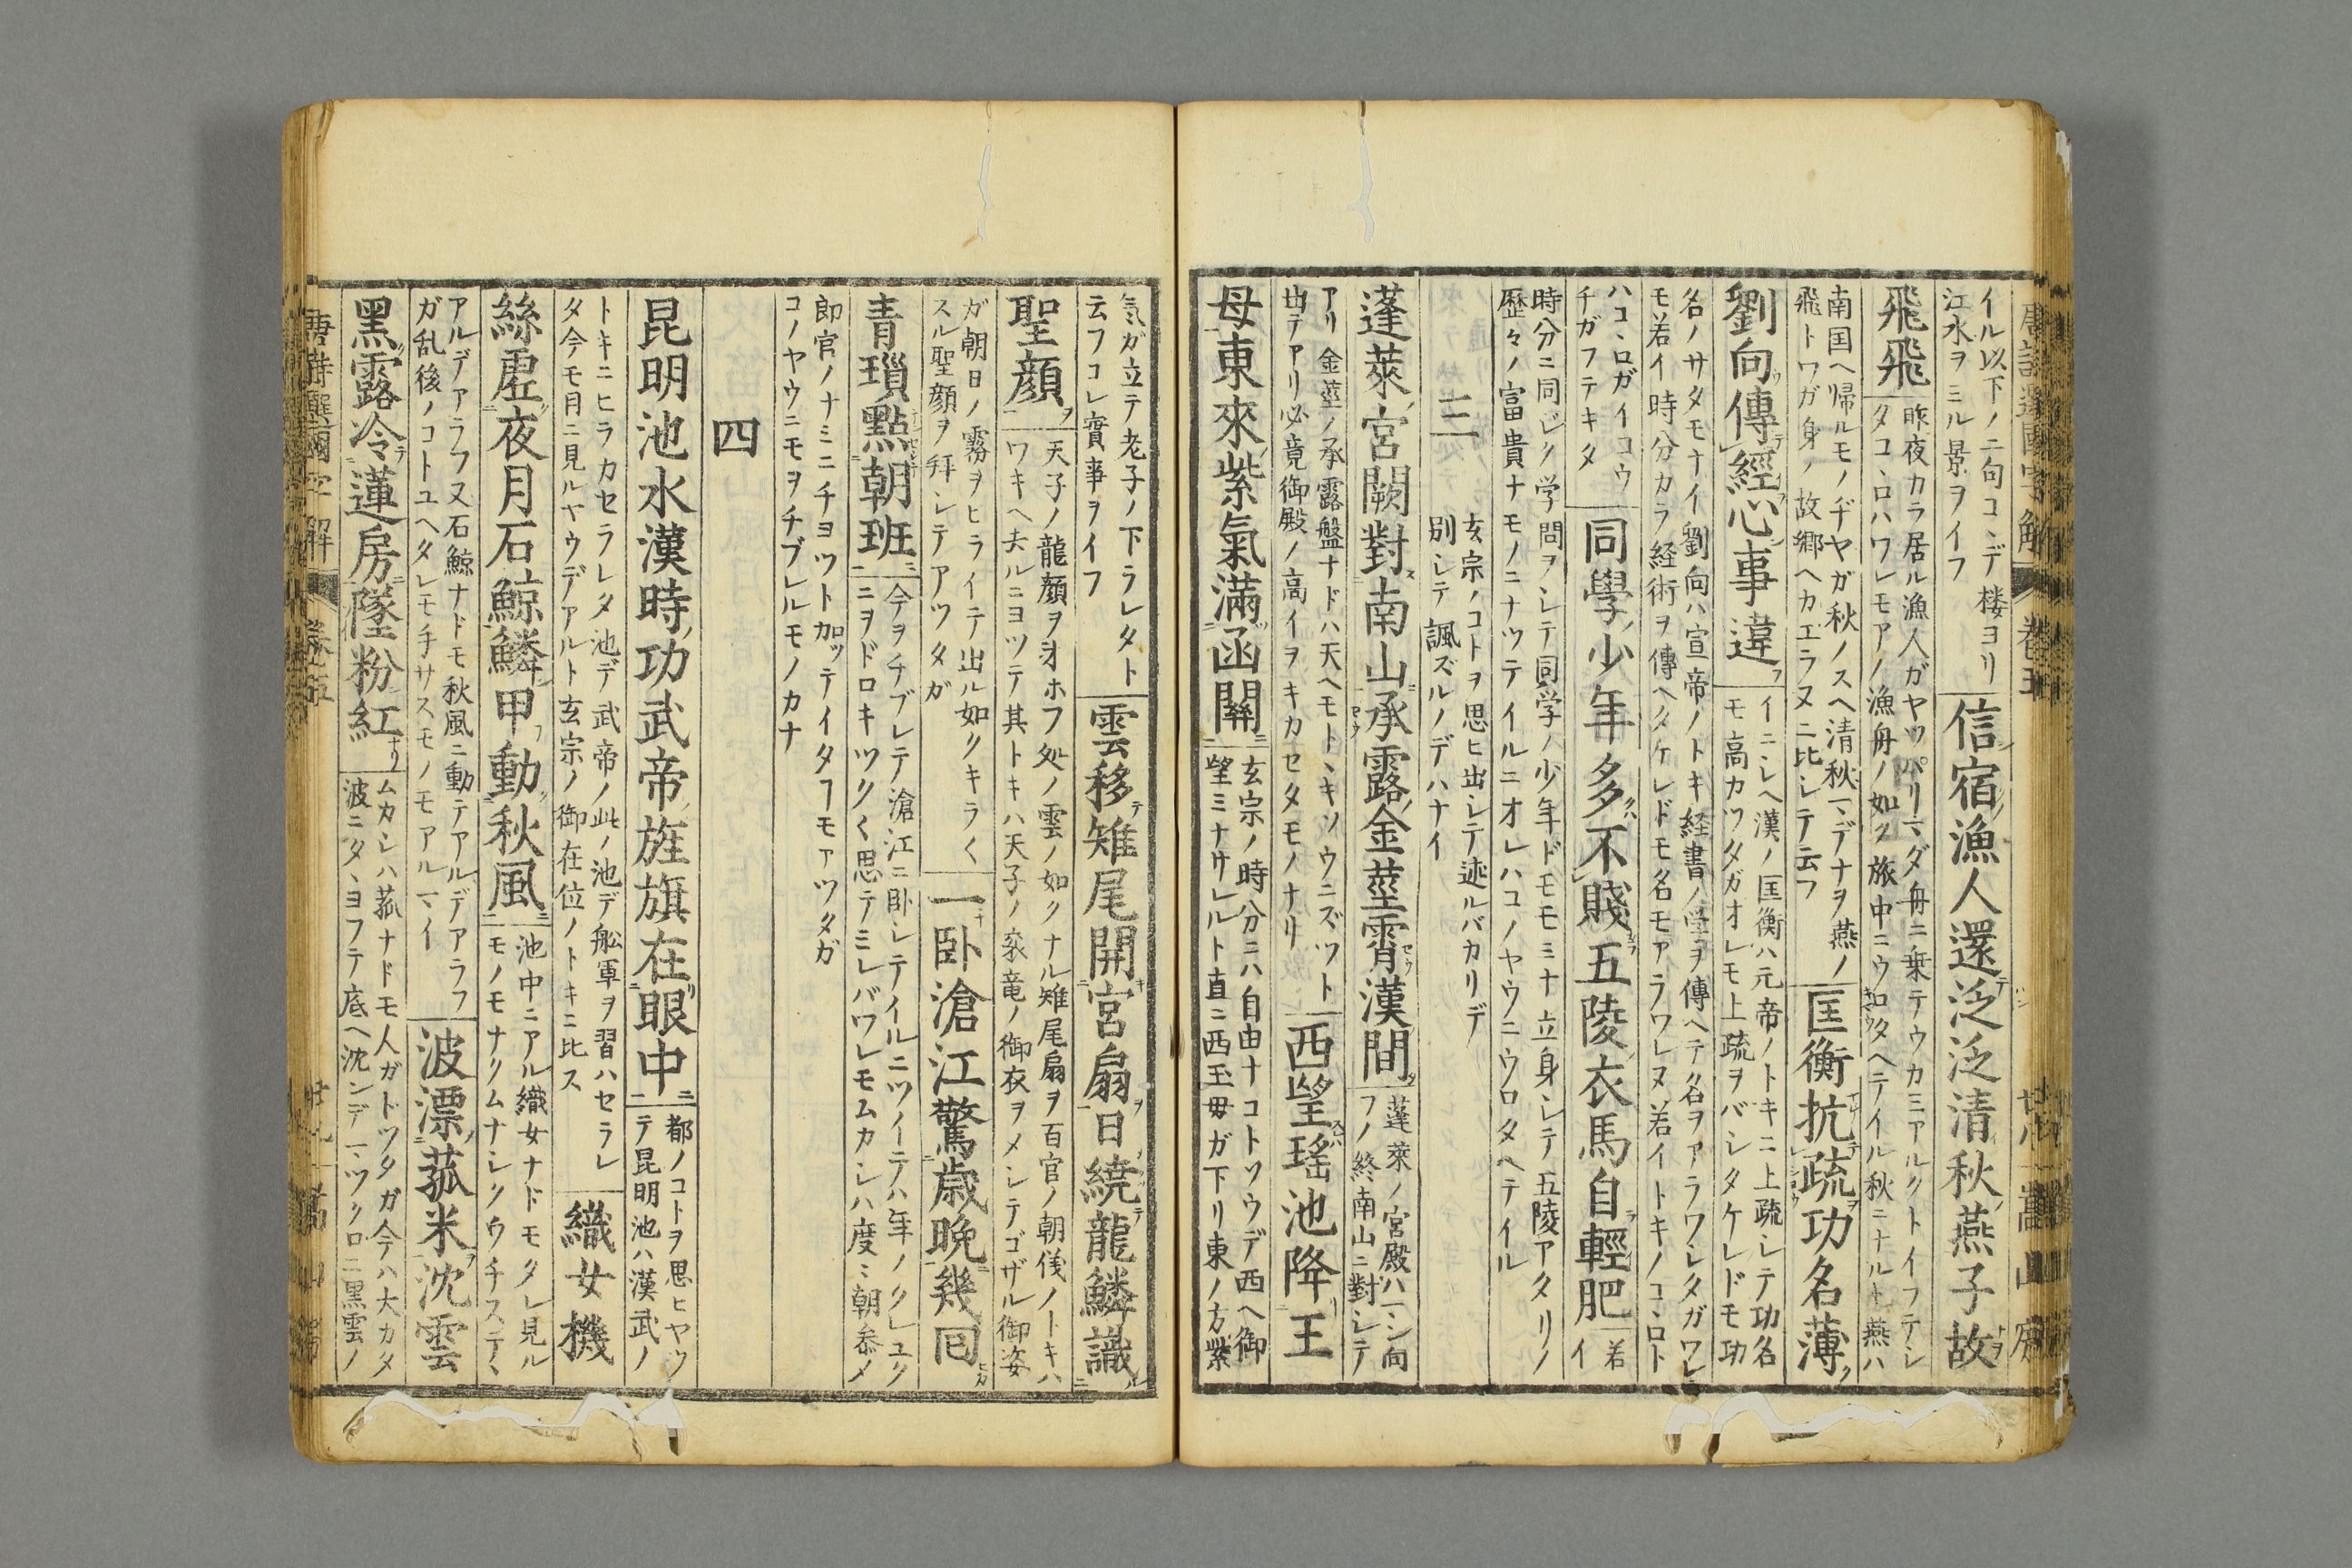 イル以下ノ二句コヽデ楼ヨリ
江水ヲミル景ヲイフ
信宿漁人還泛泛清秋燕子故
飛飛
昨夜カラ居ル漁人ガヤツパリマダ舟ニ乗テウカミアルクトイフテシ
タコヽロハワレモアノ漁舟ノ如ク旅中ニウロタヘテイル秋ニナルト燕ハ
南国ヘ帰ルモノヂヤガ秋ノスヘ清秋マデナヲ燕ノ
飛トワガ身ノ故郷ヘカエラヌニ比シテ云フ
匡衡抗疏功名薄
劉向傳經心事違
イニシヘ漢ノ匡衡ハ元帝ノトキニ上疏シテ功名
モ高カツタガオレモ上疏ヲバシタケレドモ功
名ノサタモナイ劉向ハ宣帝ノトキ経書ノ学ヲ傳ヘテ名ヲアラワシタガワレ
モ若イ時分カラ経術ヲ傳ヘタケレドモ名モアラワレヌ若イトキノコヽロト
ハコヽロガイコウ
チガフテキタ
同學少年多不賤五陵衣馬自輕肥
若
イ
時分ニ同ジク学問ヲシテ同学ノ少年ドモモミナ立身シテ五陵アタリノ
歴々ノ富貴ナモノニナツテイルニオレハコノヤウニウロタヘテイル
三
玄宗ノコトヲ思ヒ出シテ述ルバカリデ
別シテ諷ズルノデハナイ
蓬萊宮闕對南山承露金莖霄漢間
蓬萊ノ宮殿ハマン向
フノ終南山ニ對シテ
アリ金莖ノ承露盤ナドハ天ヘモトヽキソウニズツト
出テアリ必竟御殿ノ高イヲキカセタモノナリ
西望瑤池降王
母東來紫氣滿函關
玄宗ノ時分ニハ自由ナコトソウデ西ヘ御
望ミナサレルト直ニ西王母ガ下リ東ノ方紫
氣ガ立テ老子ノ下ラレタト
云フコレ實事ヲイフ
雲移雉尾開宮扇日繞龍鱗識
聖顔
天子ノ龍顔ヲオホフ処ノ雲ノ如クナル雉尾扇ヲ百官ノ朝儀ノトキハ
ワキヘ去ルニヨツテ其トキハ天子ノ袞竜ノ御衣ヲメシテゴザル御姿
ガ朝日ノ霧ヲヒライテ出ル如クキラく
スル聖顔ヲ拜シテアツタガ
一卧滄江驚歳晩幾囘
青瑣點朝班
今ヲチブレテ滄江ニ卧シテイルニツイテハ年ノクレユク
ニヲドロキツクく思テミレバワレモムカシハ度ミ朝参メ
郎官ノナミニチヨツト加ッテイタフモアツタガ
コノヤウニモヲチブレルモノカナ
四
昆明池水漢時功武帝旌旗在眼中
都ノコトヲ思ヒヤツ
テ昆明池ハ漢武ノ
トキニヒラカセラレタ池デ武帝ノ此ノ池デ舩軍ヲ習ハセラレ
タ今モ目ニ見ルヤウデアルト玄宗ノ御在位ノトキニ比ス
織女機
絲虚夜月石鯨鱗甲動秋風
池中ニアル織女ナドモタレ見ル
モノモナクムナシクウチステヽ
アルデアラフ又石鯨ナドモ秋風ニ動テアルデアラフ
ガ乱後ノコトユヘタレモ手サスモノモアルマイ
波漂菰米沈雲
黑露冷蓮房墜粉紅
ムカシハ菰ナドモ人ガトツタガ今ハ大カタ
波ニタヽヨフテ底ヘ沈ンデマツクロニ黒雲ノ
唐詩選國字解
卷五